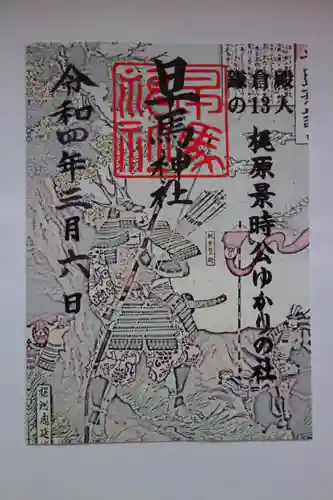 鎌倉殿
の13人
梶原景時公ゆかりの社
早馬神社
早馬
神社
令和四年三月六日